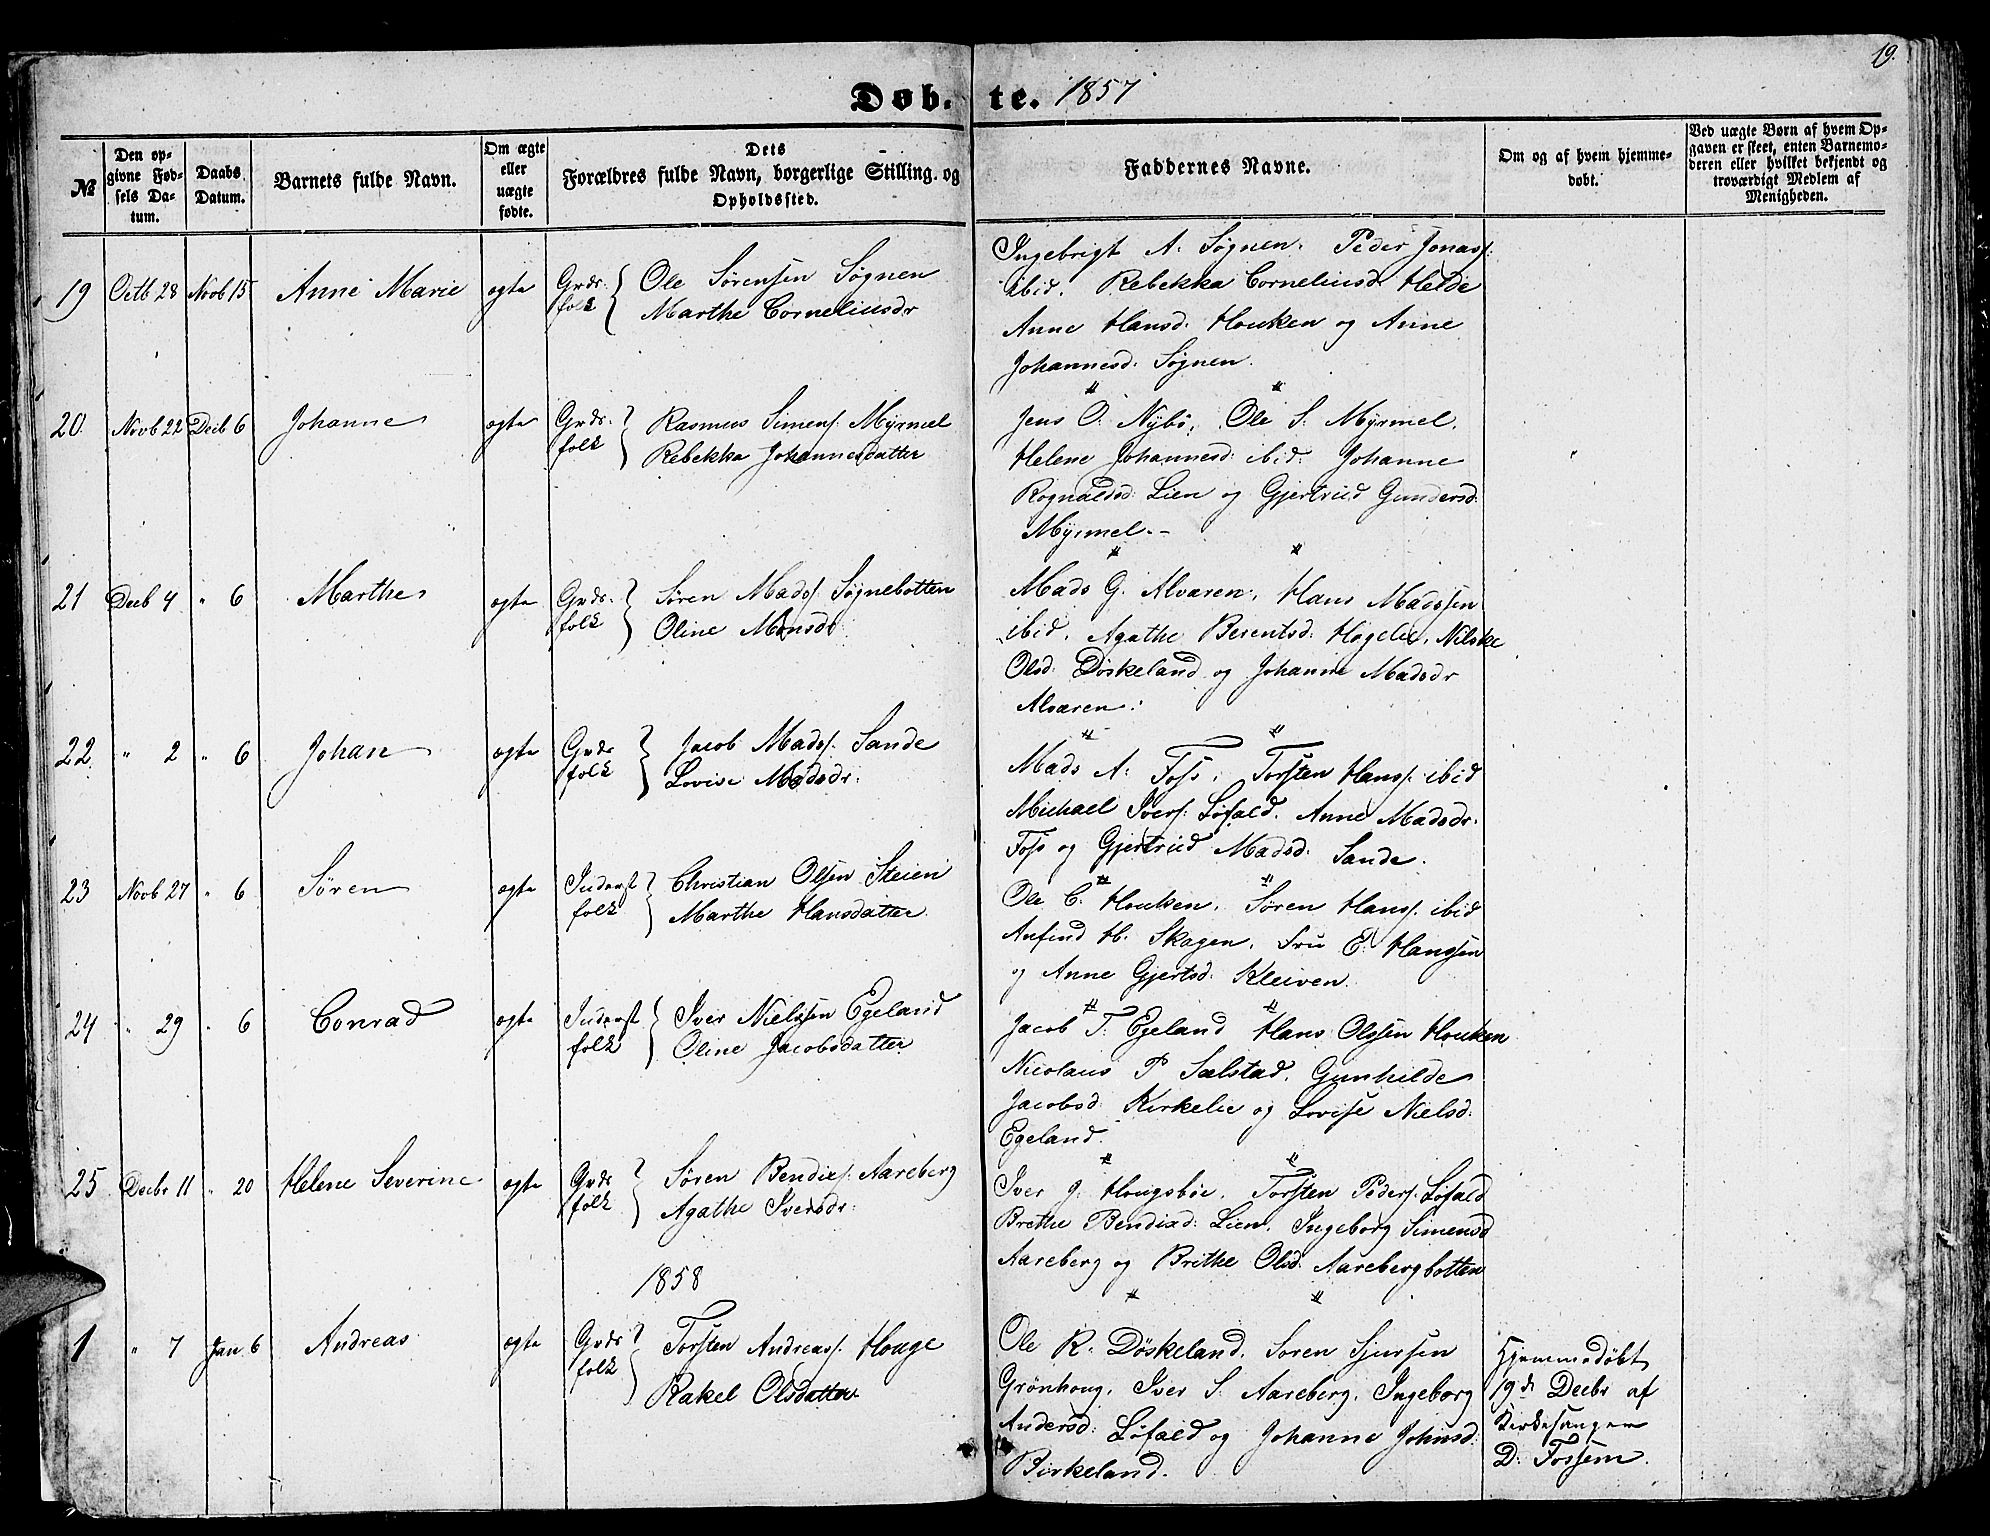 19.
Døb- te. 1857
№
Den op-
givne Fød-
sels Da-
tum.
Daabs
Datum.
Barnets fulde Navn.
Om ægte
eller
uægte
fødte.
Dets
Forældres fulde Navn, borgerlige Stilling, og
Opholdssted.
Faddernes Navne.
Om og af hvem hjemme-
døbt.
Ved uægte Børn af hvem Op-
gaven er skeet, enten Barnemo-
deren eller hvilket bekjendt og
troværdigt Medlem af
Menigheden.
19 Octb 28 Novb 15 Anne Marie ægte Grds: folk { Ole Sørensen Søgnen
Marthe Corneliusdr
Ingebrigt A. Søgnen. Peder Jonass:
ibid. Rebekka Corneliusd: Helde
Anne Hansd: Houken og Anne
Johannesd: Søgnen.
20. Novb 22 Decb 6 Johanne ægte Grds: folk } Rasmus Simens: Myrmel
Rebekka Johannesdatter
Jens O. Nybø, Ole S. Myrmel.
Helene Johannesd: ibid: Johanne
Rognaldsd: Lien og Gjertrud Gundersd:
Myrmel. -
21 Decb 4 " 6 Marthe ægte Grds: folk } Søren Madss: Søgnebotten
Oline Monsdr
Mads G. Alvaren, Hans Madssen
ibid. Agathe Berentsd: Høgelie, Nilske
Olsd: Døskeland og Johanne Madsdr
Alvaren:
22. " 2 " 6 Johan ægte Grds folk } Jacob Madss: Sande
Lovise Madsdr:
Mads A. Foss, Torsten Hanss: ibid
Michael Ivers: Løfald. Anne Madsdr:
Foss og Gjertrud Madsd: Sande.
23 Novb 27 " 6 Søren ægte Inderst folk } Christian Olsen Steien
Marthe Hansdatter
Ole C. Houken. Søren Hanss: ibid
Anfind H. Skagen. Fru E. Hanssen
og Anne Gjertsd: Kleiven.
24 " 29 " 6 Conrad ægte Inderst folk { Iver Nielssen Egeland
Oline Jacobsdatter
Jacob T. Egeland Hans Olssen Houken
Nicolaus P Sælstad. Gunhilde
Jacobsd: Kirkelie og Lovise Nielsd:
Egeland.
25 Decbr 11 " 20 Helene Severine ægte Grds folk } Søren Bendixs: Aareberg
Agathe Iversdr:
Iver J. Hougsbøe. Torsten Peders: Løfald
Brethe Bendixd: Lien. Ingeborg Simensd
Aareberg og Brithe Olsd: Aarebergbotten
1858
1 " 7 Jan 6 Andreas ægte Grds folk } Torsten Andreass: Houge
Rakel Olsdatter
Ole R. Døskeland. Søren Sjursen
Grønhoug. Iver S. Aareberg. Ingeborg
Andersd: Løfald og Johanne Johnsd:
Birkeland.
Hjemmedøbt
19de Decbr af
Kirkesanger
D. Fossem.